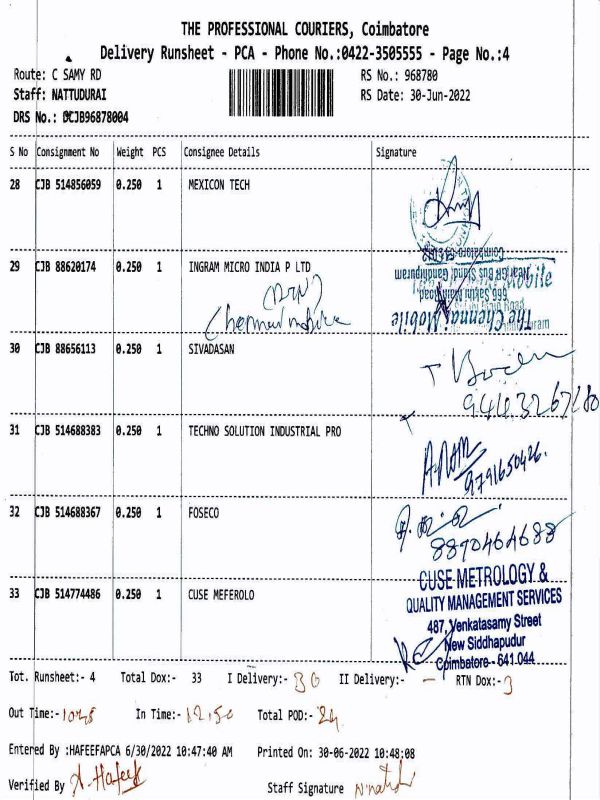 THE PROFESSIONAL COURIERS, Coimbatore
Delivery Runsheet - PCA - Phone No.:0422-3505555 - Page No.:4
Route: C SAMY RD
RS No.: 968780
Staff: NATTUDURAI
RS Date: 30-Jun-2022
DRS No.: CJB96878004
S No Consignment No Weight PCS Consignee Details Signature
28 CJB 514856059 0.250 1 MEXICON TECH
29 CJB 88620174 0.250 1 INGRAM MICRO INDIA P LTD
The Chennai Mobile
666, Sathi Main Road,
Near GP Bus Stand, Gandhipuram
Coimbatore
30 CJB 88656113 0.250 1 SIVADASAN
31 CJB 514688383 0.250 1 TECHNO SOLUTION INDUSTRIAL PRO
9791650426.
32 CJB 514688367 0.250 1 FOSECO
8870464688
33 CJB 514774486 0.250 1 CUSE MEFEROLO
CUSE METROLOGY &
QUALITY MANAGEMENT SERVICES
487, Venkatasamy Street
New Siddhapudur
Coimbatore - 641 044
Tot. Runsheet:- 4 Total Dox:- 33 I Delivery:- 30 II Delivery:- - RTN Dox:- 3
Out Time:- 1045 In Time:- 12.50 Total POD:- 24
Entered By :HAFEEFAPCA 6/30/2022 10:47:40 AM Printed On: 30-06-2022 10:48:08
Verified By A. Hafeef
Staff Signature